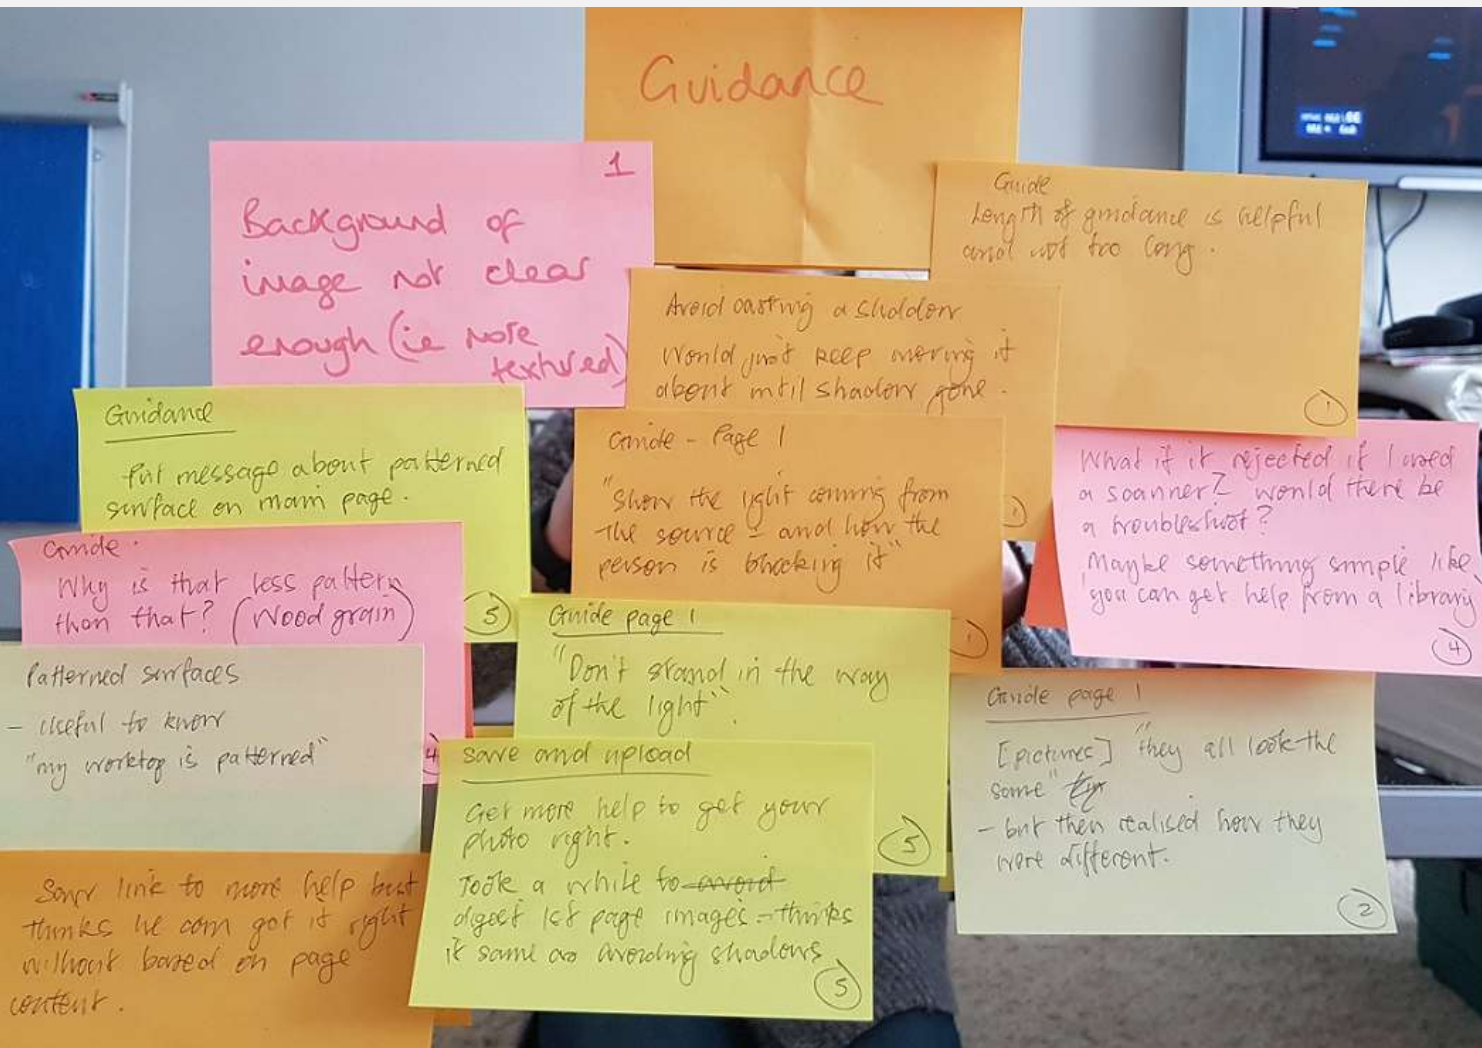 Guidance
1
Background of
image not clear
enough (ie more
textured)
Guide
Length of guidance is helpful
and not too long.
1
Avoid casting a shaddow
Would just keep moving it
about until shadow gone.
1
Guidance
Put message about patterned
surface on main page.
5
Guide - Page 1
"Show the light coming from
the source - and how the
person is blocking it"
1
What if it rejected if I used
a scanner? would there be
a troubleshoot?
Maybe something simple like
'you can get help from a library
4
Guide.
Why is that less pattern
than that? (Wood grain)
4
Guide page 1
"Don't stand in the way
of the light".
5
Patterned surfaces
- Useful to know
"my worktop is patterned"
Guide page 1
[pictures] "they all look the
same"
- but then realised how they
were different.
2
Save and upload
Get more help to get your
photo right.
Took a while to avoid
digest 1st page images - thinks
it same as avoiding shadows
5
Saw link to more help but
thinks he can get it right
without based on page
content.